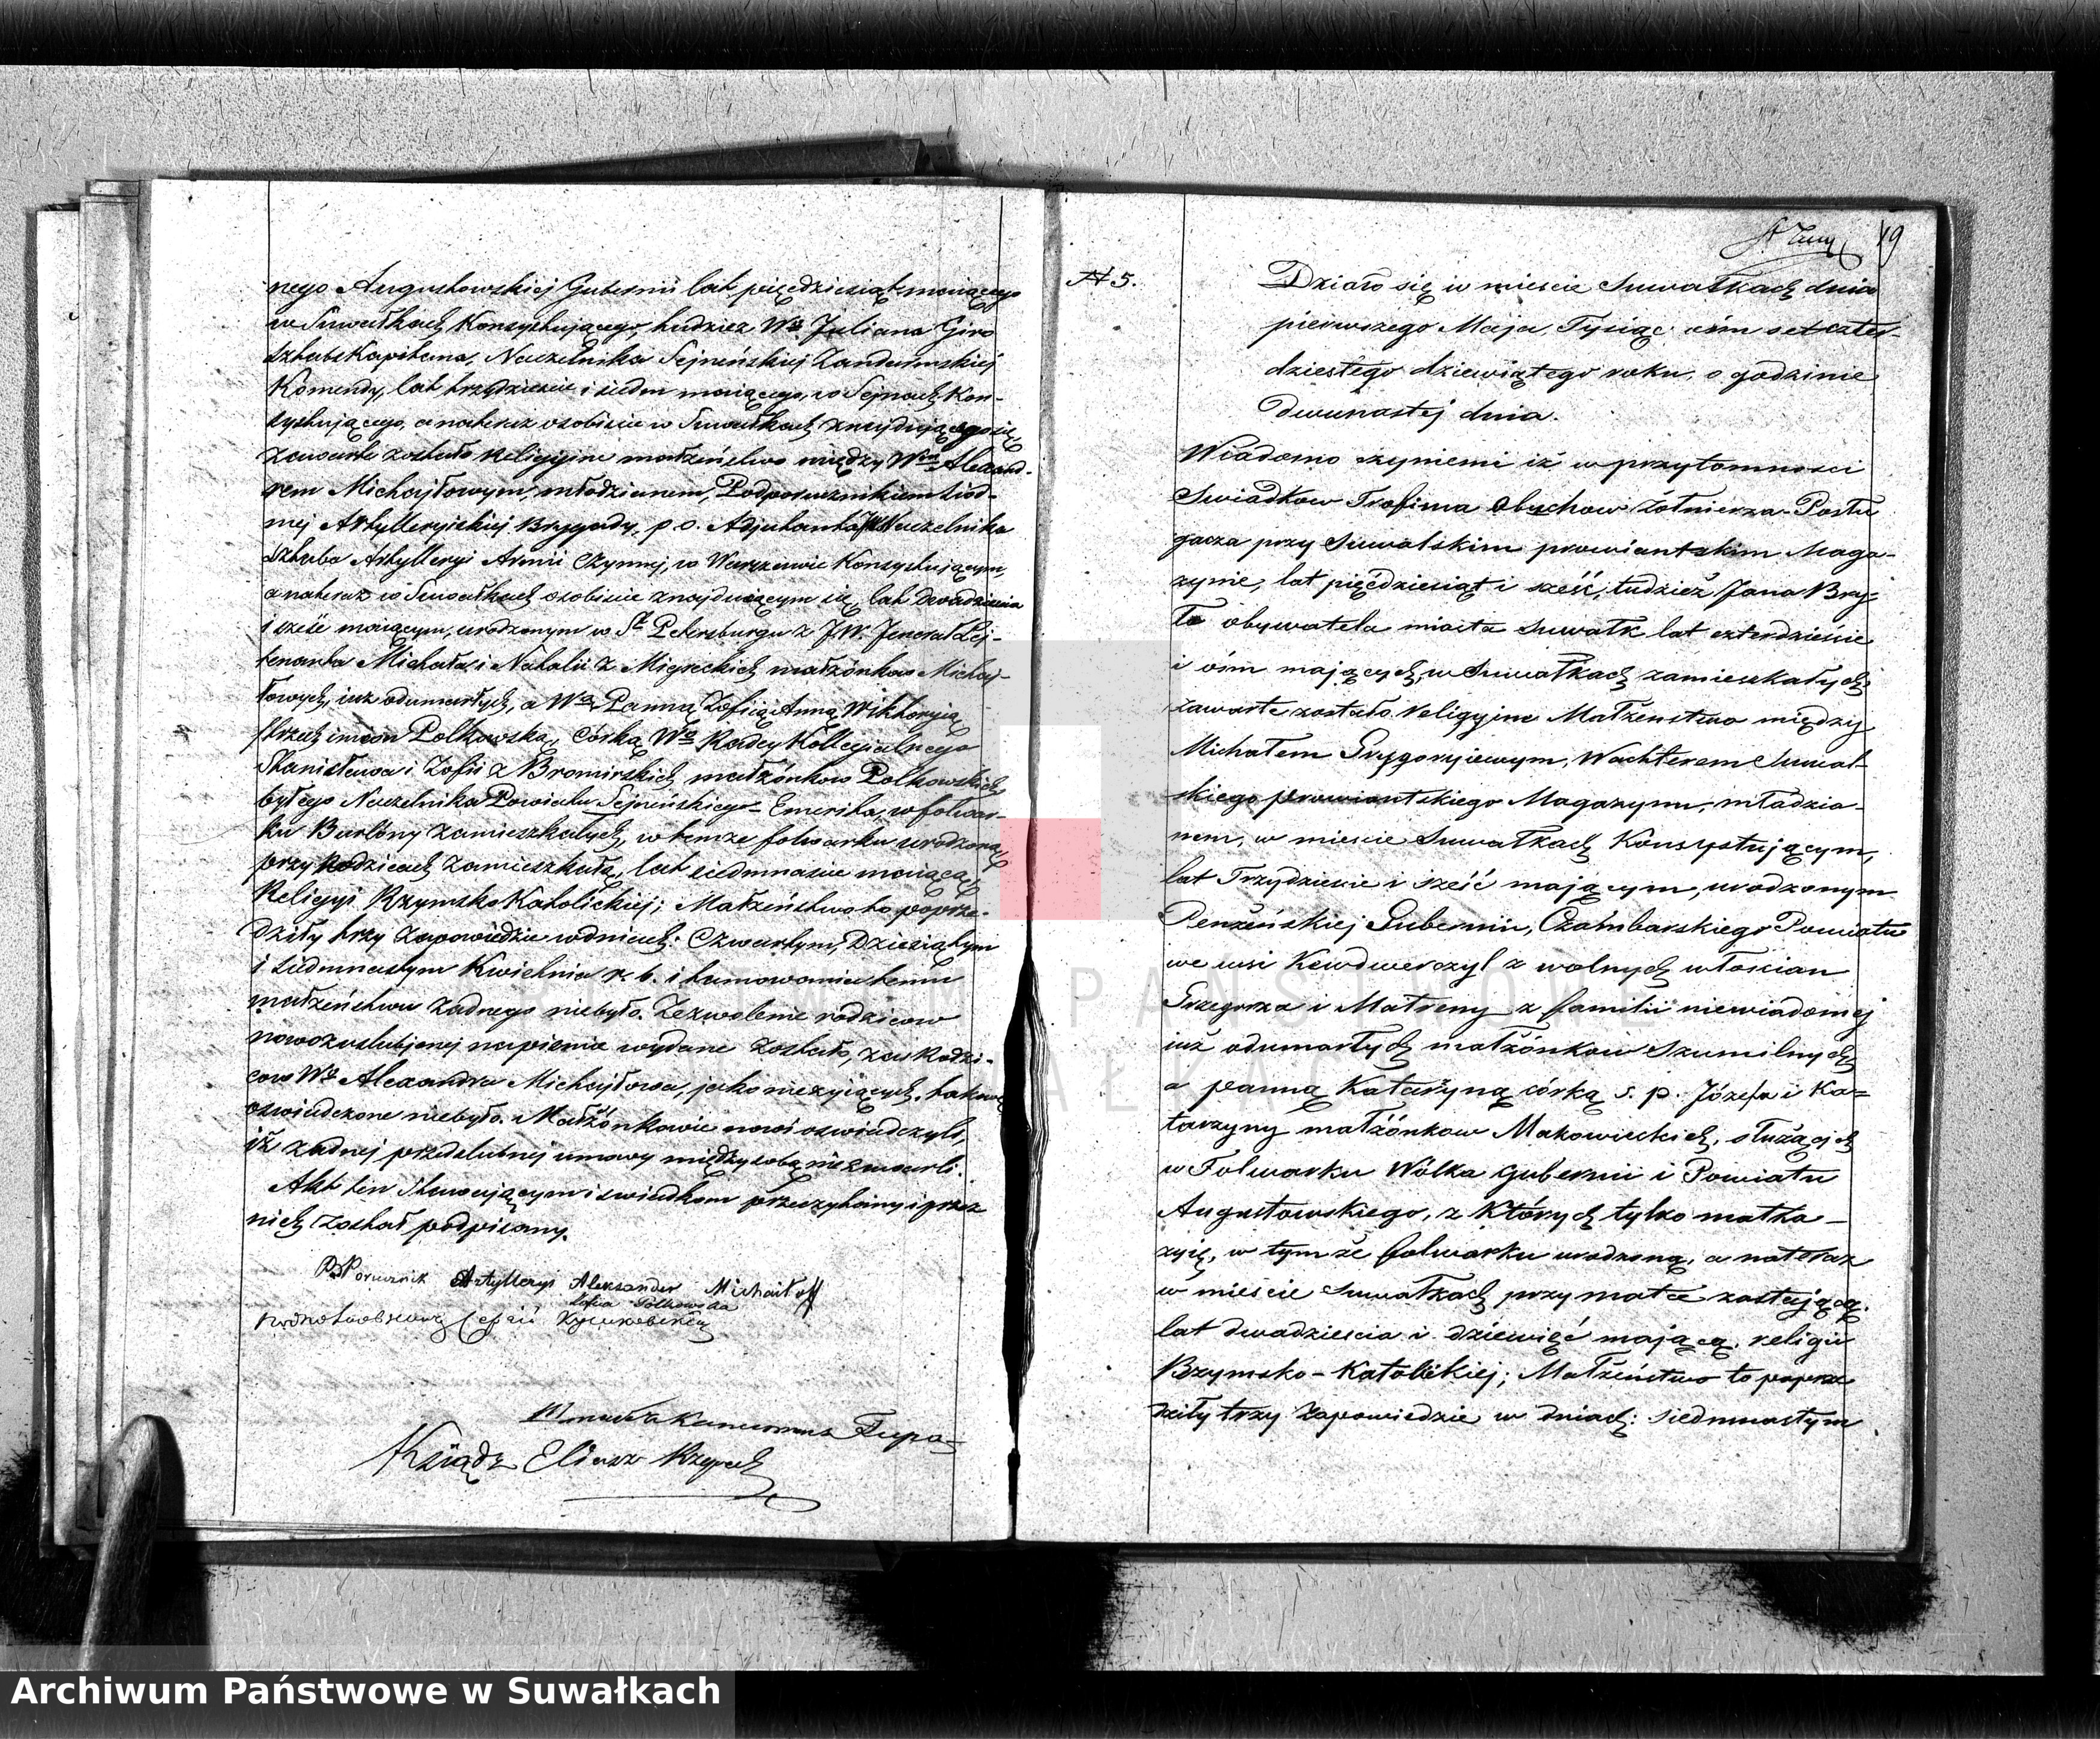 nego Augustowskiej Gubernii lat pięćdziesiąt mającego
w Suwałkach Konsystującego, tudzież Wo Juliana Giro
Sztabs Kapitana, Naczelnika Sejneńskiej Żandarmskiej
Komendy, lat trzydzieście i siedm mającego, w Sejnach Kon-
systującego, a nateraz osobiście w Suwałkach znajdującego się
zawarte zostało religijne małżeństwo między Wm Alexand-
rem Michajłowym, młodzianem, Podporucznikiem Siód-
mej Artylleryjskiej Brygady, p.o. Adjutanta Naczelnika
Sztaba Artylleryi Armii Czynnej, w Warszawie Konsystującym,
a nateraz w Suwałkach osobiście znajdującym się, lat Dwadzieścia
i sześć mającym, urodzonym w St Petersburgu z J.W. Jenerał Lej-
tenanta Michała i Natalii z małżonków Michaj-
łowych, już odumarłych, a Wą Panną Zofią Anną Wiktoryią
trzech imion Polkowską, Córką Wo Radcy Kollegialnego
Stanisława i Zofii z Bromirskich małżonków Polkowskich
byłego Naczelnika Powiatu Sejneńskiego Emeryta, w folwar-
ku zamieszkałych, w temże folwarku urodzoną
przy Rodzicach zamieszkałą, lat siedmnaście mającą,
Religyi Rzymsko Katolickiej; Małżeństwo to poprze-
dziły trzy zapowiedzie w dniach: Czwartym, Dziesiątym
i siedmnastym Kwietnia r. b. i tamowania temu
małżeństwu żadnego niebyło. Zezwolenie rodziców
nowozaślubionej na piśmie wydane zostało, zaś Rodzi-
ców Wo Alexandra Michajłowa, jako nieżyjących, takowe
oświadczone niebyło. Małżonkowie nowi oświadczyli,
iż żadnej przedślubnej umowy między sobą nie zawarli.
Akt ten Stawającym i świadkom przeczytany i przez
nich został podpisany.
PPorucznik Artylleryi Aleksander Michaiłoff
Zofia Polkowska
Ksiądz Eliasz
A. 19
N 5.
Działo się w mieście Suwałkach dnia
pierwszego Maja, Tysiąc ośm set czter-
dziestego dziewiątego roku, o godzinie
Dwunastej dnia.
Wiadomo czyniemi iż w przytomności
Świadków Trofima Obuchow Żołnierza Posłu
gacza przy Suwalskim prowiantskim Maga-
zynie, lat pięćdziesiąt i sześć, tudzież Jana Bry-
ło obywatela miasta Suwałk lat czterdzieście
i ośm mających, w Suwałkach zamieszkałych;
zawarte zostało religyine Małżenstwo między
Michałem Grygoryjewym, Wachterem Suwal-
skiego prowiantskiego Magazynu, młodzia-
nem, w mieście Suwałkach Konsystującym,
lat Trzydzieście i sześć mającym, urodzonym
Penzeńskiej Gubernii, Czambarskiego Powiatu
we wsi Kewdwerczyl z wolnych włościan
Grzegorza i Matreny z familii niewiadomej
już odumarłych małżonków Szumilnych
a panną Katarzyną córką ś. p. Józefa i Ka-
tarzyny małżonkow Makowieckich, służących
w Folwarku Wólka Gubernii i Powiatu
Augustowskiego, z Których tylko matka-
żyje, w tymże folwarku urodzoną, a nateraz
w mieście Suwałkach przy matce zostającą.
lat dwadzieścia i dziewięć mającą, religii
Rzymsko-Katolickiej; Małżeństwo to poprze
dziły trzy Zapowiedzie w dniach: siedmnastym
ARCHIWUM PAŃSTWOWE
SUWAŁKACH
Archiwum Państwowe w Suwałkach